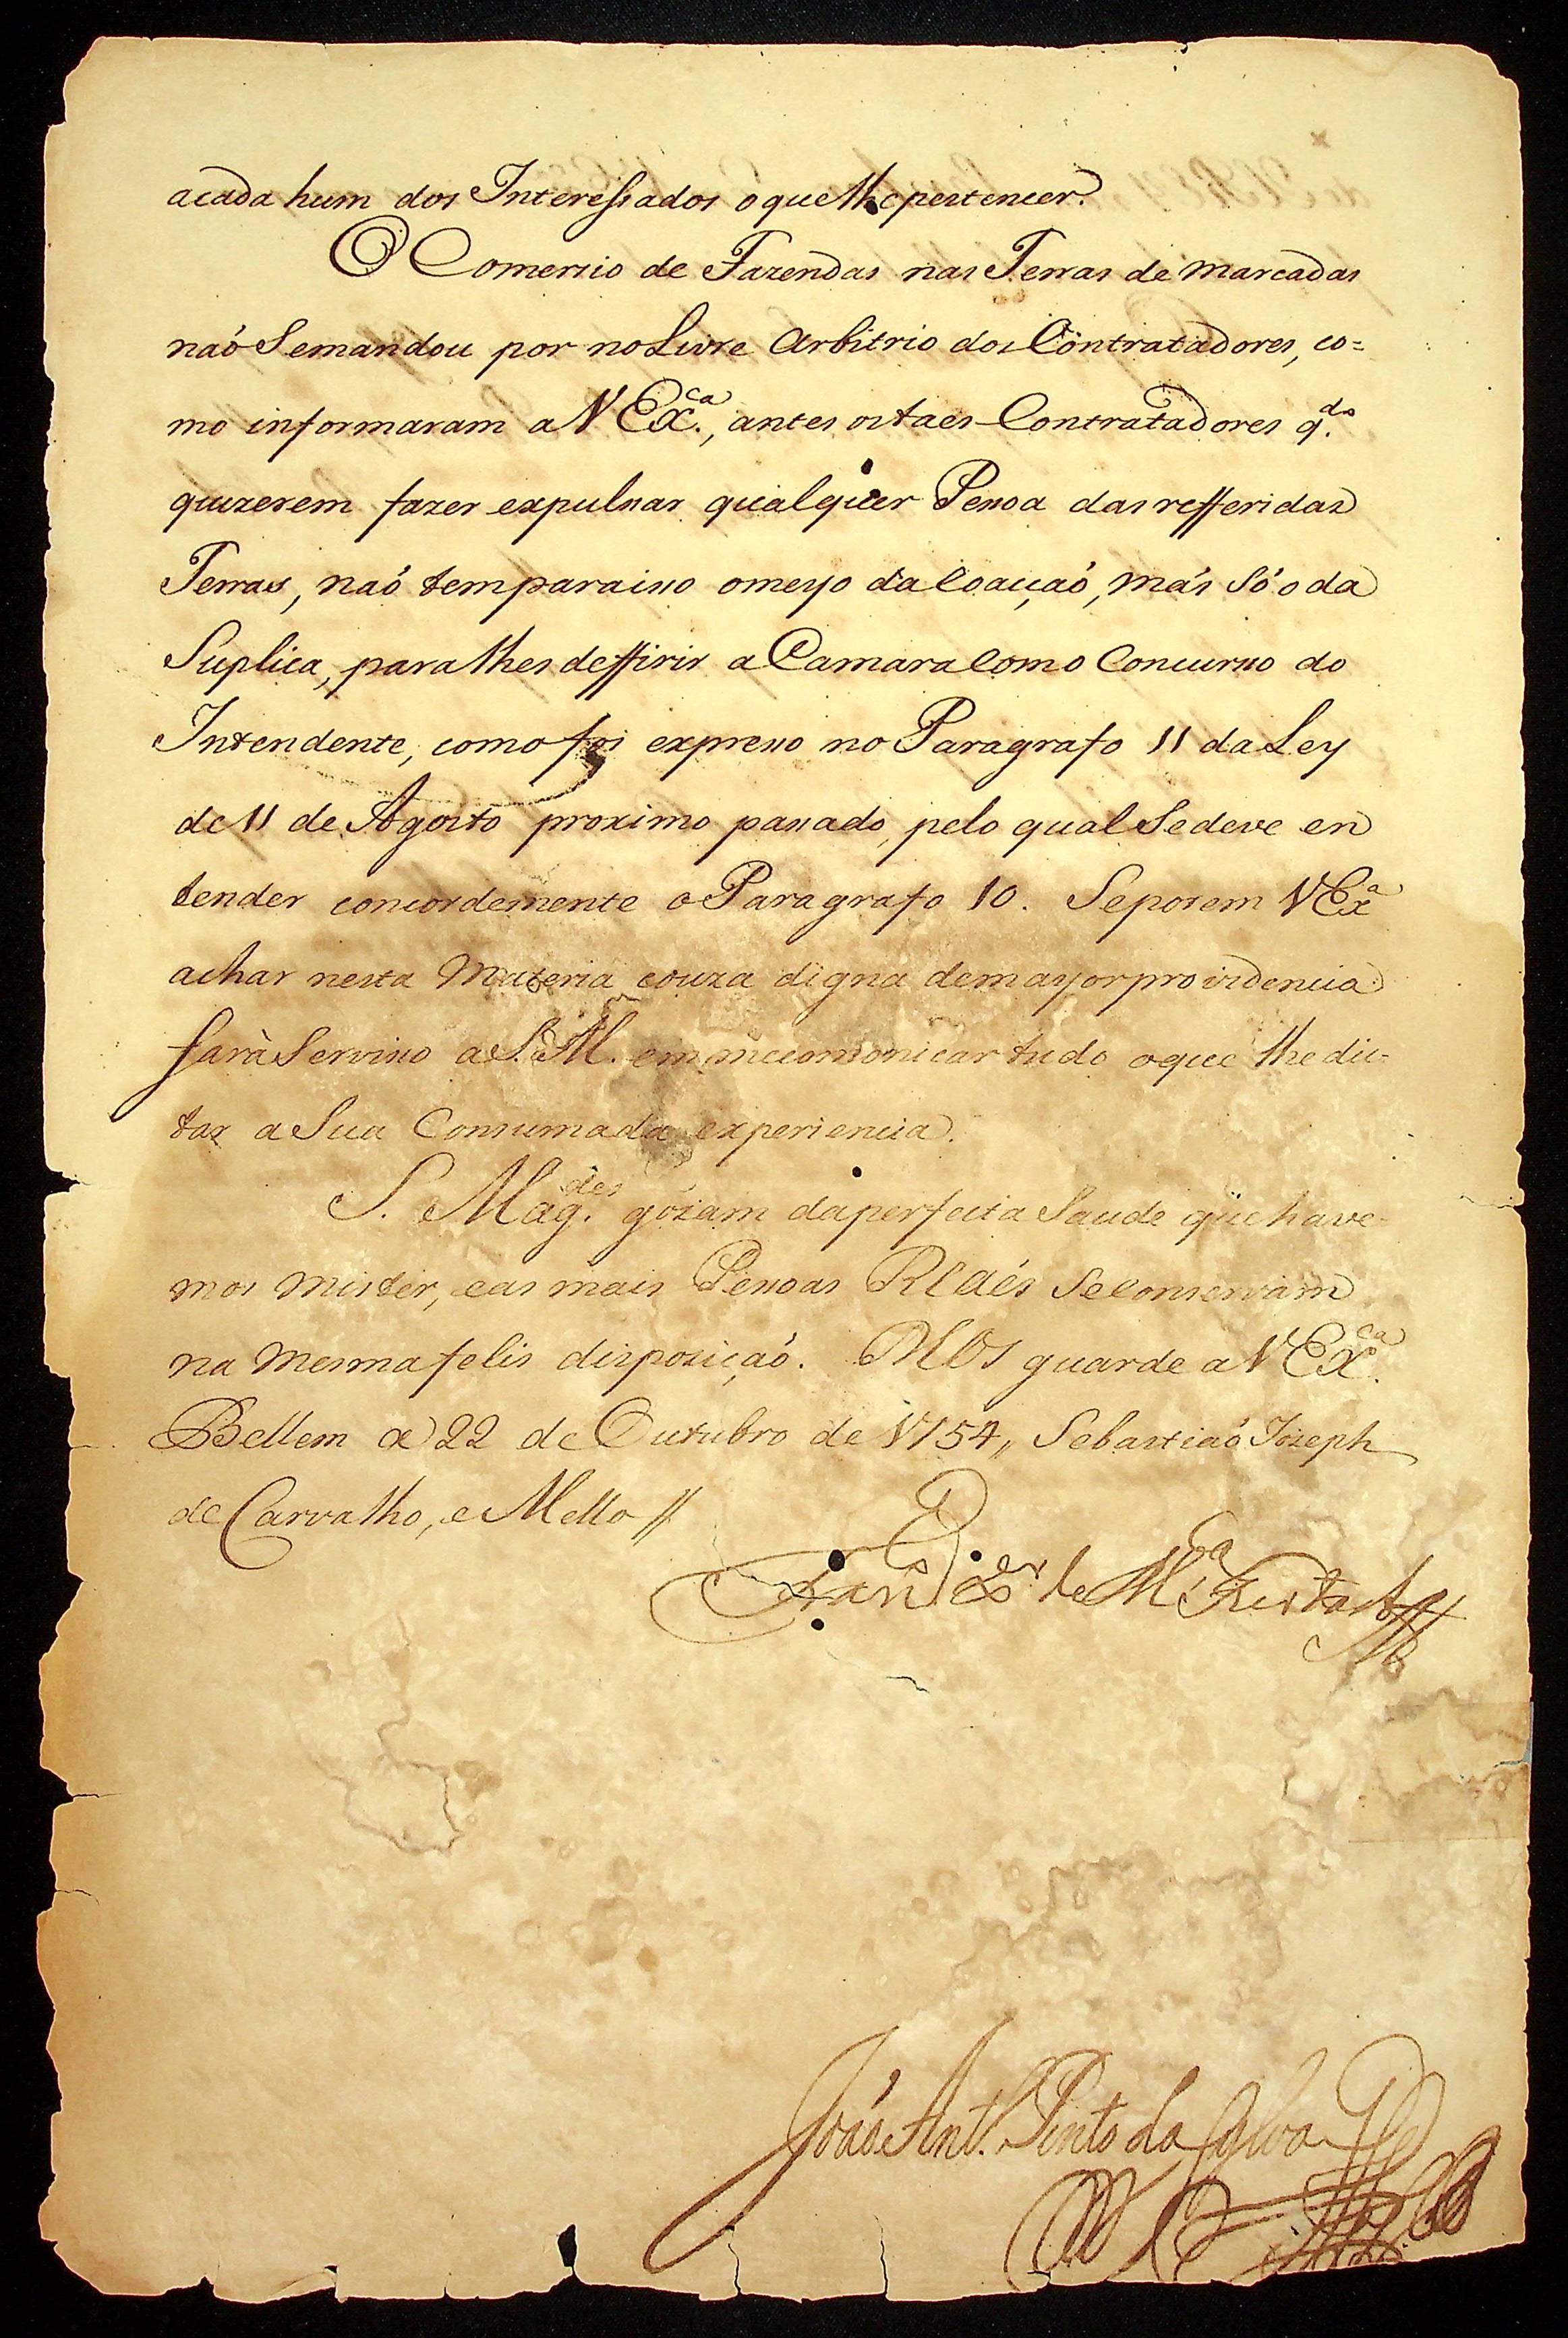 acada hum dos Interessados oque lhe pertencer.
O Comersio de Fazendas nas Terras de marcadas
naó Semandou por noLivre Arbitrio dos Contratadores, co=
mo informaram a V Ex.ᶜᵃ, antes os taes Contratadores q.ᵈᵒ
quizerem fazer expulsar qualquer Pessoa das refferidas
Terras, naó tem paraisso omeyo da Coacçaó, más Só o da
Suplica, para lhes deffirir a Camara Como Concurso do
Intendente, como foi expresso no Paragrafo 11 da Ley
de 11 de Agosto proximo passado, pelo qual Sedeve en
tender concordemente o Paragrafo 10. Seporem V Exᵃ
achar nesta Materia couza digna demayor providencia
fará Servisso a S. M. em mecomonicar tudo oque lhe dic-
tar a Sua Consumada experiencia.
S. Mag.ᵈᵉˢ gózam daperfeita Saude que have-
mos mister, eas mais Pessoas Reaés Seconservam
na mesma felis dispoziçaó. D.ˢ guarde a V Ex.ᶜᵃ
Bellem a 22 de Outubro de 1754,, Sebastiaó Joseph
de Carvalho, e Mello //
de M.ᵃ
Joáo Ant.º Pinto da Sylva